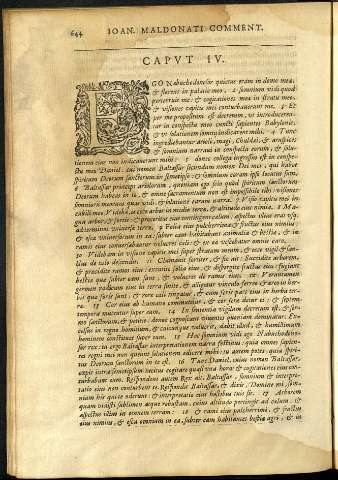 644 IOAN. MALDONATI COMMENT.
CAPVT IV.
EGO Nabuchodonosor quietus eram in domo mea,
& florens in palatio meo, 2 somnium vidi quod
perterruit me: & cogitationes meæ in stratu meo,
& visiones capitis mei conturbauerunt me. 3 Et
per me propositum est decretum, vt introduceren-
tur in conspectu meo cuncti sapientes Babylonis,
& vt solutionem somnij indicarent mihi. 4 Tunc
ingrediebantur arioli, magi, Chaldæi, & aruspices
& somnium narraui in conspectu eorum, & solu-
tionem eius non indicauerunt mihi: 5 donec collega ingressus est in conspe-
ctu meo Daniel, cui nomen Baltassar secundum nomen Dei mei, qui habet
spiritum Deorum sanctorum in semetipso: & somnium coram ipso locutus sum.
6 Baltassar princeps ariolorum, quoniam ego scio quòd spiritum sanctorum
Deorum habeas in te, & omne sacramentum non est impossibile tibi: visiones
somniorum meorum quas vidi, & solutionem earum narra. 7 Visio capitis mei in
cubili meo: Videbam, & ecce arbor in medio terræ, & altitudo eius nimia. 8 Ma-
gna arbor, & fortis: & proceritas eius contingens cælum, aspectus illius erat vsque
ad terminos vniuersæ terræ. 9 Folia eius pulcherrima, & fructus eius nimius:
& esca vniuersorum in ea: subter eam habitabant animalia & bestiæ, & in
ramis eius conuersabantur volucres cæli: & ex ea vescebatur omnis caro.
10 Videbam in visione capitis mei super stratum meum, & ecce vigil & san-
ctus de cælo descendit. 11 Clamauit fortiter, & sic ait: Succidite arborem,
& præcidite ramos eius: excutite folia eius, & dispergite fructus eius: fugiant
bestiæ quæ subter eam sunt, & volucres de ramis eius. 12 Verumtamen
germen radicum eius in terra sinite, & alligetur vinculo ferreo & æreo in her-
bis quæ foris sunt, & rore cæli tingatur, & cum feris pars eius in herba ter-
ræ. 13 Cor eius ab humano commutetur, & cor feræ detur ei: & septem
tempora mutentur super eum. 14 In sententia vigilum decretum est, & ser-
mo sanctorum, & petitio: donec cognoscant viuentes quoniam dominatur Ex-
celsus in regno hominum, & cuicunque voluerit, dabit illud, & humillimum
hominem constituet super eum. 15 Hoc somnium vidi ego Nabuchodono-
sor rex: tu ergo Baltassar interpretationem narra festinus: quia omnes sapien-
tes regni mei non queunt solutionem edicere mihi: tu autem potes: quia spiri-
tus Deorum sanctorum in te est. 16 Tunc Daniel, cuius nomen Baltassar,
cœpit intra semetipsum tacitus cogitare quasi vna hora: & cogitationes eius con-
turbabant eum. Respondens autem Rex ait: Baltassar, somnium & interpre-
tatio eius non conturbent te. Respondit Baltassar, & dixit, Domine mi, som-
nium his qui te oderunt: & interpretatio eius hostibus tuis sit. 17 Arborem
quam vidisti sublimem atque robustam, cuius altitudo pertingit ad cælum, &
aspectus illius in omnem terram: 18 & rami eius pulcherrimi, & fructus
eius nimius, & esca omnium in ea, subter eam habitantes bestiæ agri, & in